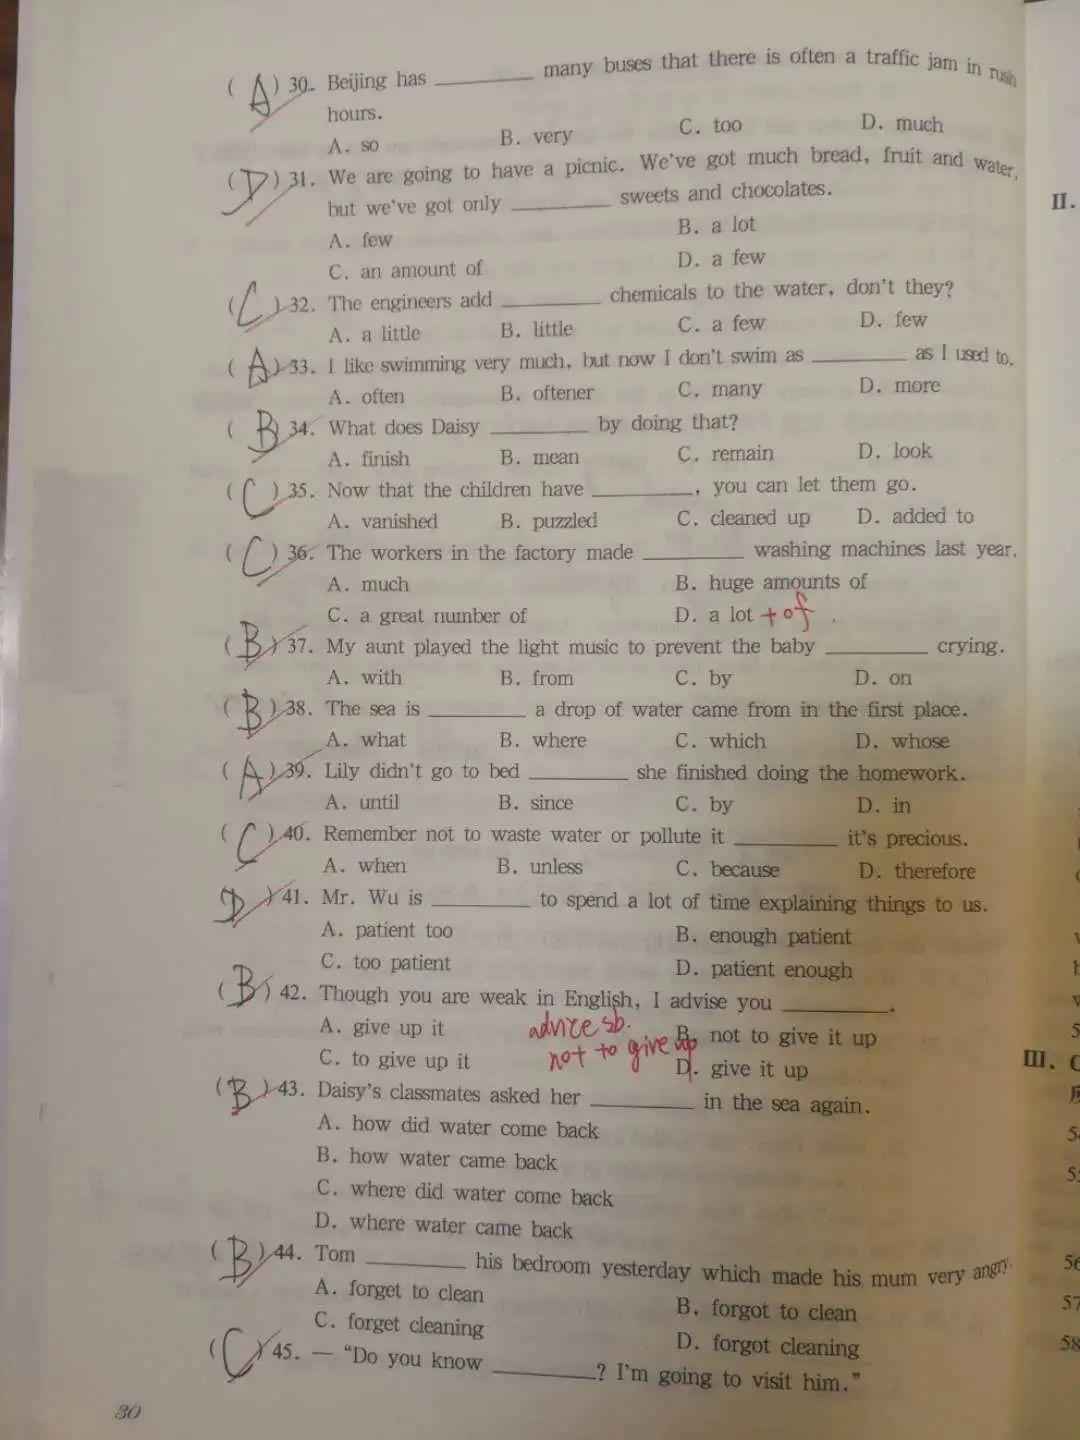 ( A ) 30. Beijing has ________ many buses that there is often a traffic jam in rush
hours.
A. so B. very C. too D. much
( D ) 31. We are going to have a picnic. We've got much bread, fruit and water,
but we've got only ________ sweets and chocolates.
A. few B. a lot
C. an amount of D. a few
( C ) 32. The engineers add ________ chemicals to the water, don't they?
A. a little B. little C. a few D. few
( A ) 33. I like swimming very much, but now I don't swim as ________ as I used to.
A. often B. oftener C. many D. more
( B ) 34. What does Daisy ________ by doing that?
A. finish B. mean C. remain D. look
( C ) 35. Now that the children have ________, you can let them go.
A. vanished B. puzzled C. cleaned up D. added to
( C ) 36. The workers in the factory made ________ washing machines last year.
A. much B. huge amounts of
C. a great number of D. a lot + of
( B ) 37. My aunt played the light music to prevent the baby ________ crying.
A. with B. from C. by D. on
( B ) 38. The sea is ________ a drop of water came from in the first place.
A. what B. where C. which D. whose
( A ) 39. Lily didn't go to bed ________ she finished doing the homework.
A. until B. since C. by D. in
( C ) 40. Remember not to waste water or pollute it ________ it's precious.
A. when B. unless C. because D. therefore
( D ) 41. Mr. Wu is ________ to spend a lot of time explaining things to us.
A. patient too B. enough patient
C. too patient D. patient enough
( B ) 42. Though you are weak in English, I advise you ________.
A. give up it B. not to give it up
advice sb.
not to give up
C. to give up it D. give it up
( B ) 43. Daisy's classmates asked her ________ in the sea again.
A. how did water come back
B. how water came back
C. where did water come back
D. where water came back
( B ) 44. Tom ________ his bedroom yesterday which made his mum very angry.
A. forget to clean B. forgot to clean
C. forget cleaning D. forgot cleaning
( C ) 45. — "Do you know ________? I'm going to visit him."
30
II.
III.
56
57
58